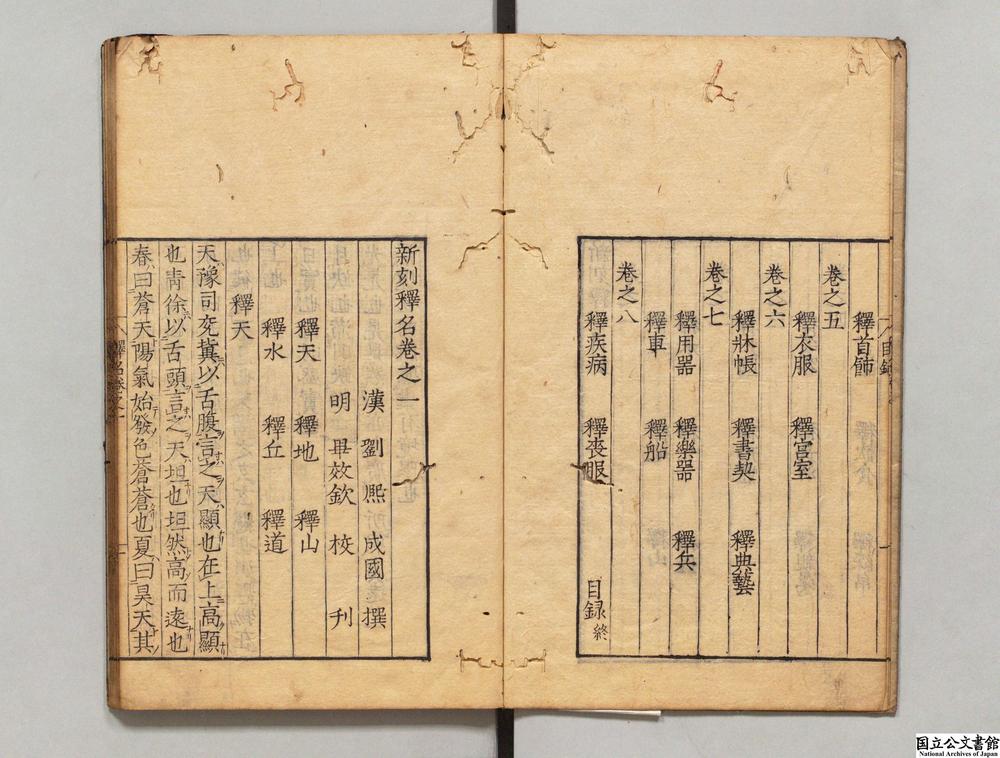 目録
釋首飾
卷之五
釋衣服 釋宮室
卷之六
釋牀帳 釋書契 釋典藝
卷之七
釋用器 釋樂器 釋兵
釋車 釋船
卷之八
釋疾病 釋喪 目録終
新刻釋名卷之一
漢 劉熙 成國 撰
明 畢效欽 校 刊
釋天 釋地 釋山
釋水 釋丘 釋道
釋天
天豫司兗冀以舌腹言之天顯也在上高顯
也靑徐以舌頭言之天坦也坦然高而遠也
春曰蒼天陽氣始發色蒼蒼也夏曰昊天其
釋名卷之一
国立公文書館
National Archives of Japan